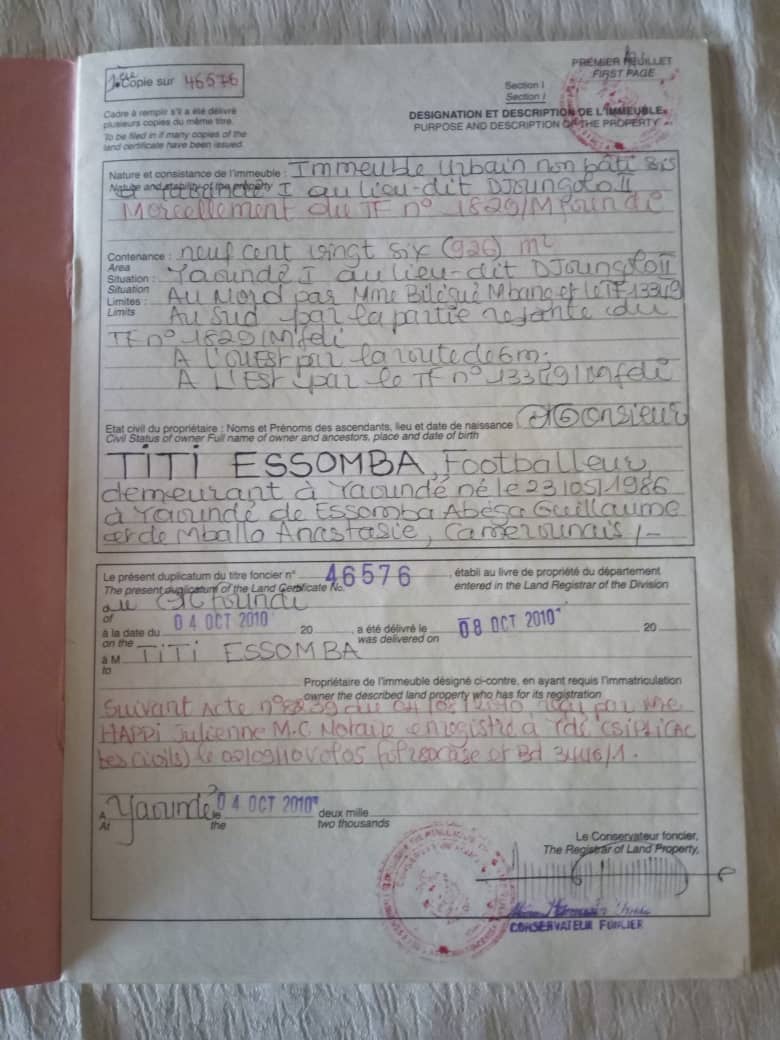 1ère Copie sur 46576
PREMIER FEUILLET
FIRST PAGE
Section I
Section I
Cadre à remplir s'il a été délivré
plusieurs copies du même titre.
To be filed in if many copies of the
land certificate have been issued.
DESIGNATION ET DESCRIPTION DE L'IMMEUBLE
PURPOSE AND DESCRIPTION OF THE PROPERTY
Nature et consistance de l'immeuble : Immeuble Urbain non bâti sis
Nature and stability of the property
à Yaoundé I au lieu-dit DJoungolo II
Morcellement du TF n° 1829/Mfoundi
Contenance : neuf cent vingt six (926) m²
Area
Situation : Yaoundé I au lieu-dit DJoungolo II
Situation
Limites : Au Nord par Mme Bilégué Mbang et le TF 13349
Limits
Au Sud par la partie restante du
TF n° 1829/Mfdi
A l'Ouest par la route de 6m.
A L'Est par le TF n° 13349/Mfdi
Etat civil du propriétaire : Noms et Prénoms des ascendants, lieu et date de naissance : Monsieur
Civil Status of owner Full name of owner and ancestors, place and date of birth
TITI ESSOMBA, Footballeur,
demeurant à Yaoundé né le 23/05/1986
à Yaoundé de Essomba Abéga Guillaume
et de Mballa Anastasie, Camerounais /-
Le présent duplicatum du titre foncier n° 46576, établi au livre de propriété du département
The present duplicatum of the Land Certificate No. entered in the Land Registrar of the Division
du Mfoundi
of
à la date du 04 OCT 2010 20 , a été délivré le 08 OCT 2010 20
on the was delivered on
à M TITI ESSOMBA
to
Propriétaire de l'immeuble désigné ci-contre, en ayant requis l'immatriculation
owner the described land property who has for its registration
Suivant Acte n° du reçu par Me
HAPPI Julienne M.C Notaire enregistré à Ydé
le 02/09/10 Vol 05 Bd 3446/1.
A Yaoundé le 04 OCT 2010 deux mille
At the two thousands
Le Conservateur foncier,
The Registrar of Land Property,
CONSERVATEUR FONCIER